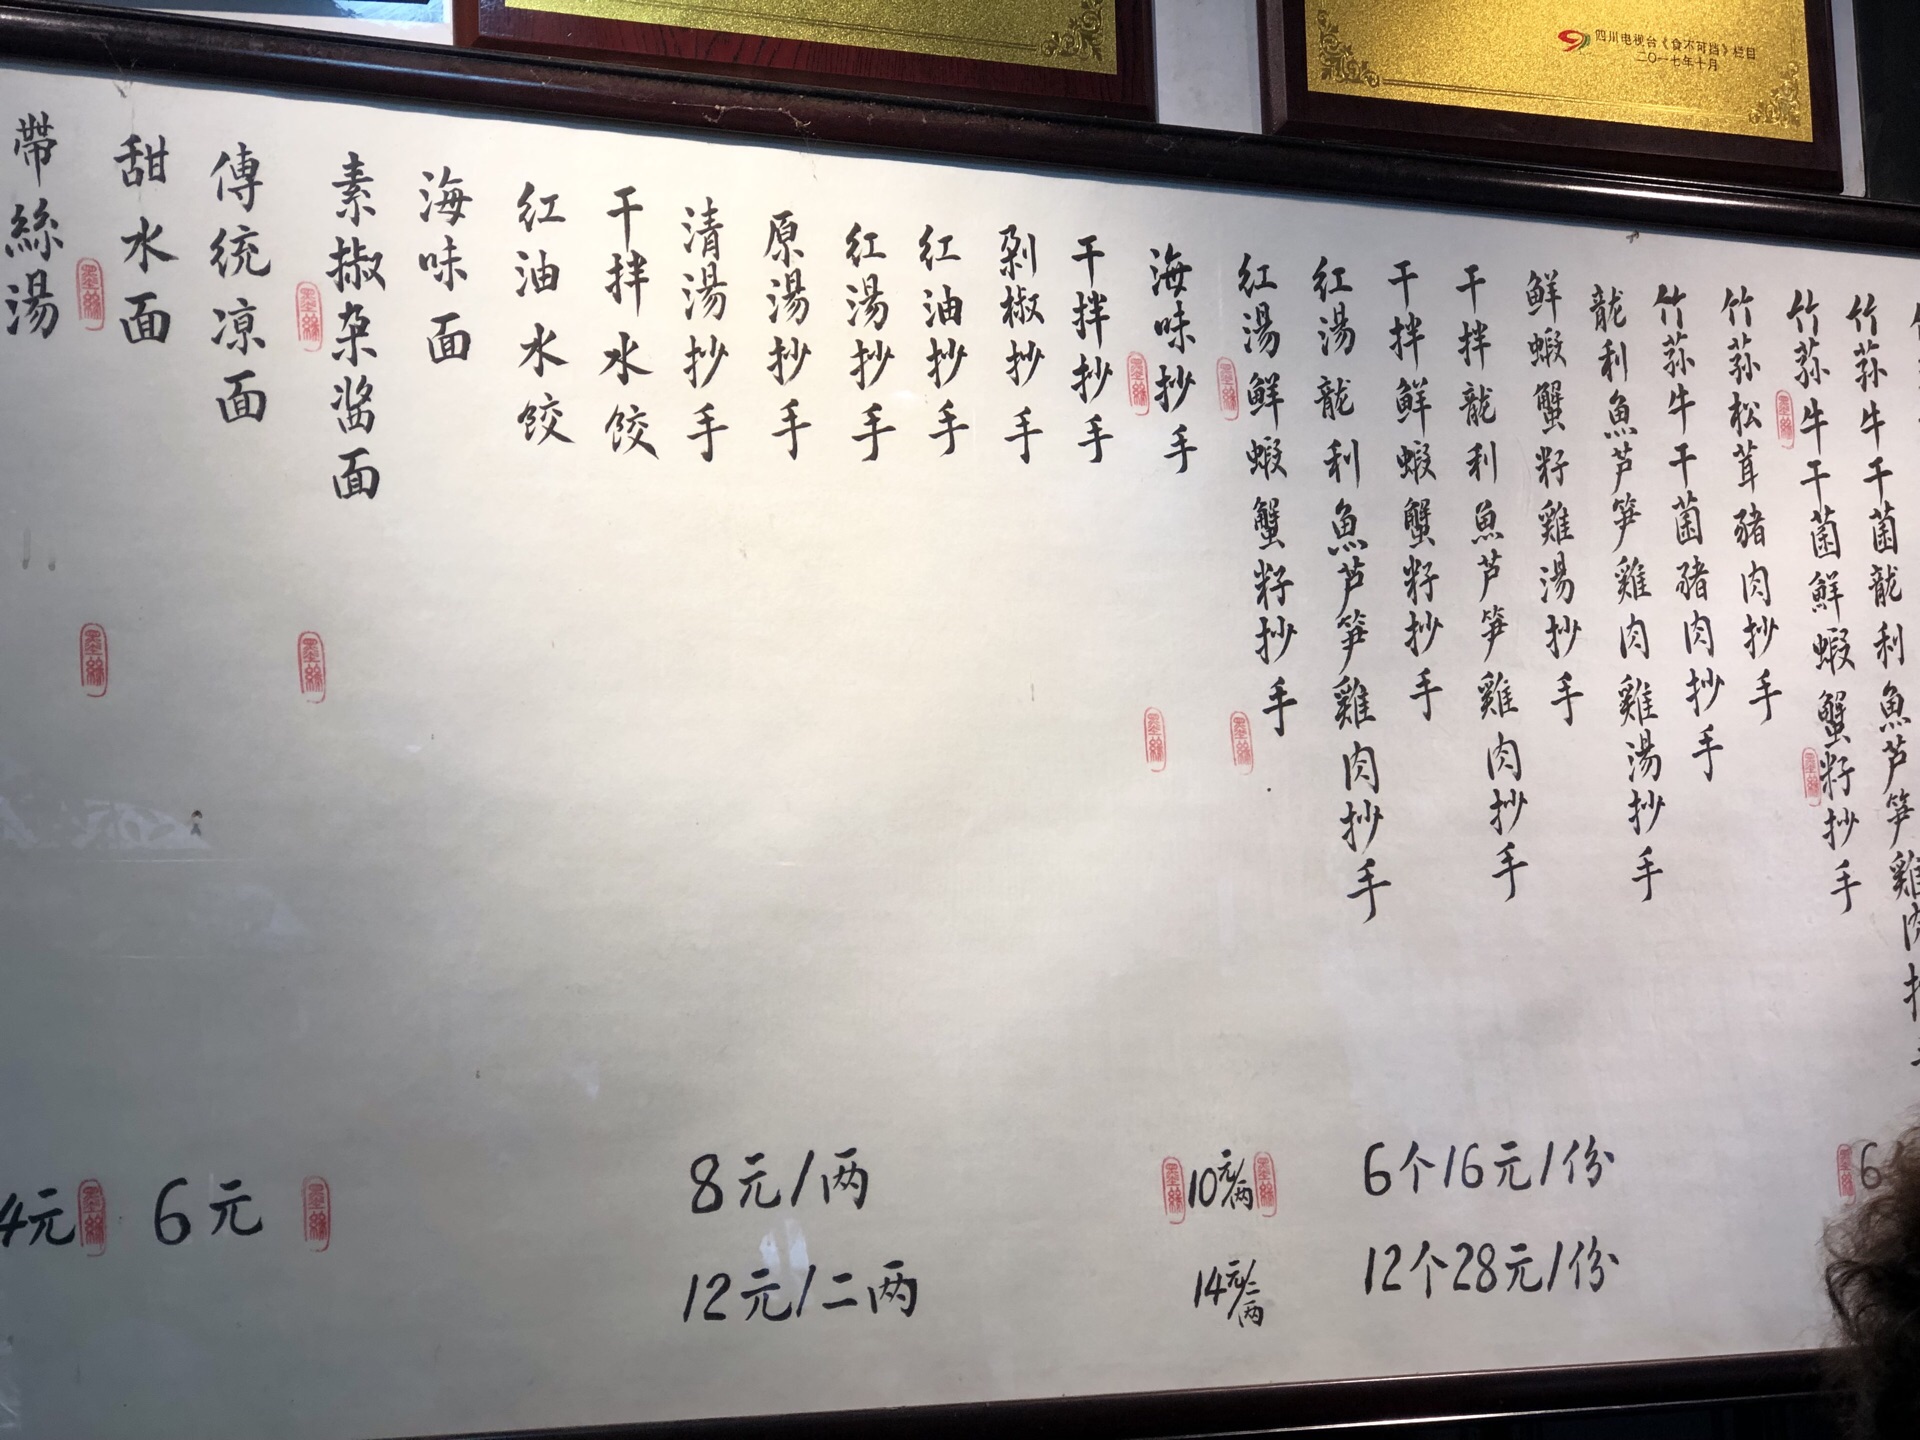 四川电视台《食不可挡》栏目
二〇一七年十月
竹荪牛干菌龍利魚芦笋雞肉
竹荪牛干菌鮮蝦蟹籽抄手
竹荪松茸豬肉抄手
竹荪牛干菌豬肉抄手
龍利魚芦笋雞肉雞湯抄手
鮮蝦蟹籽雞湯抄手
干拌龍利魚芦笋雞肉抄手
干拌鮮蝦蟹籽抄手
紅湯龍利魚芦笋雞肉抄手
紅湯鮮蝦蟹籽抄手
海味抄手
干拌抄手
剁椒抄手
紅油抄手
紅湯抄手
原湯抄手
清湯抄手
干拌水饺
紅油水饺
海味面
素椒杂酱面
傳統凉面
甜水面
帶絲湯
6
6个16元/份
12个28元/份
10元/两
14元/二两
8元/两
12元/二两
6元
4元